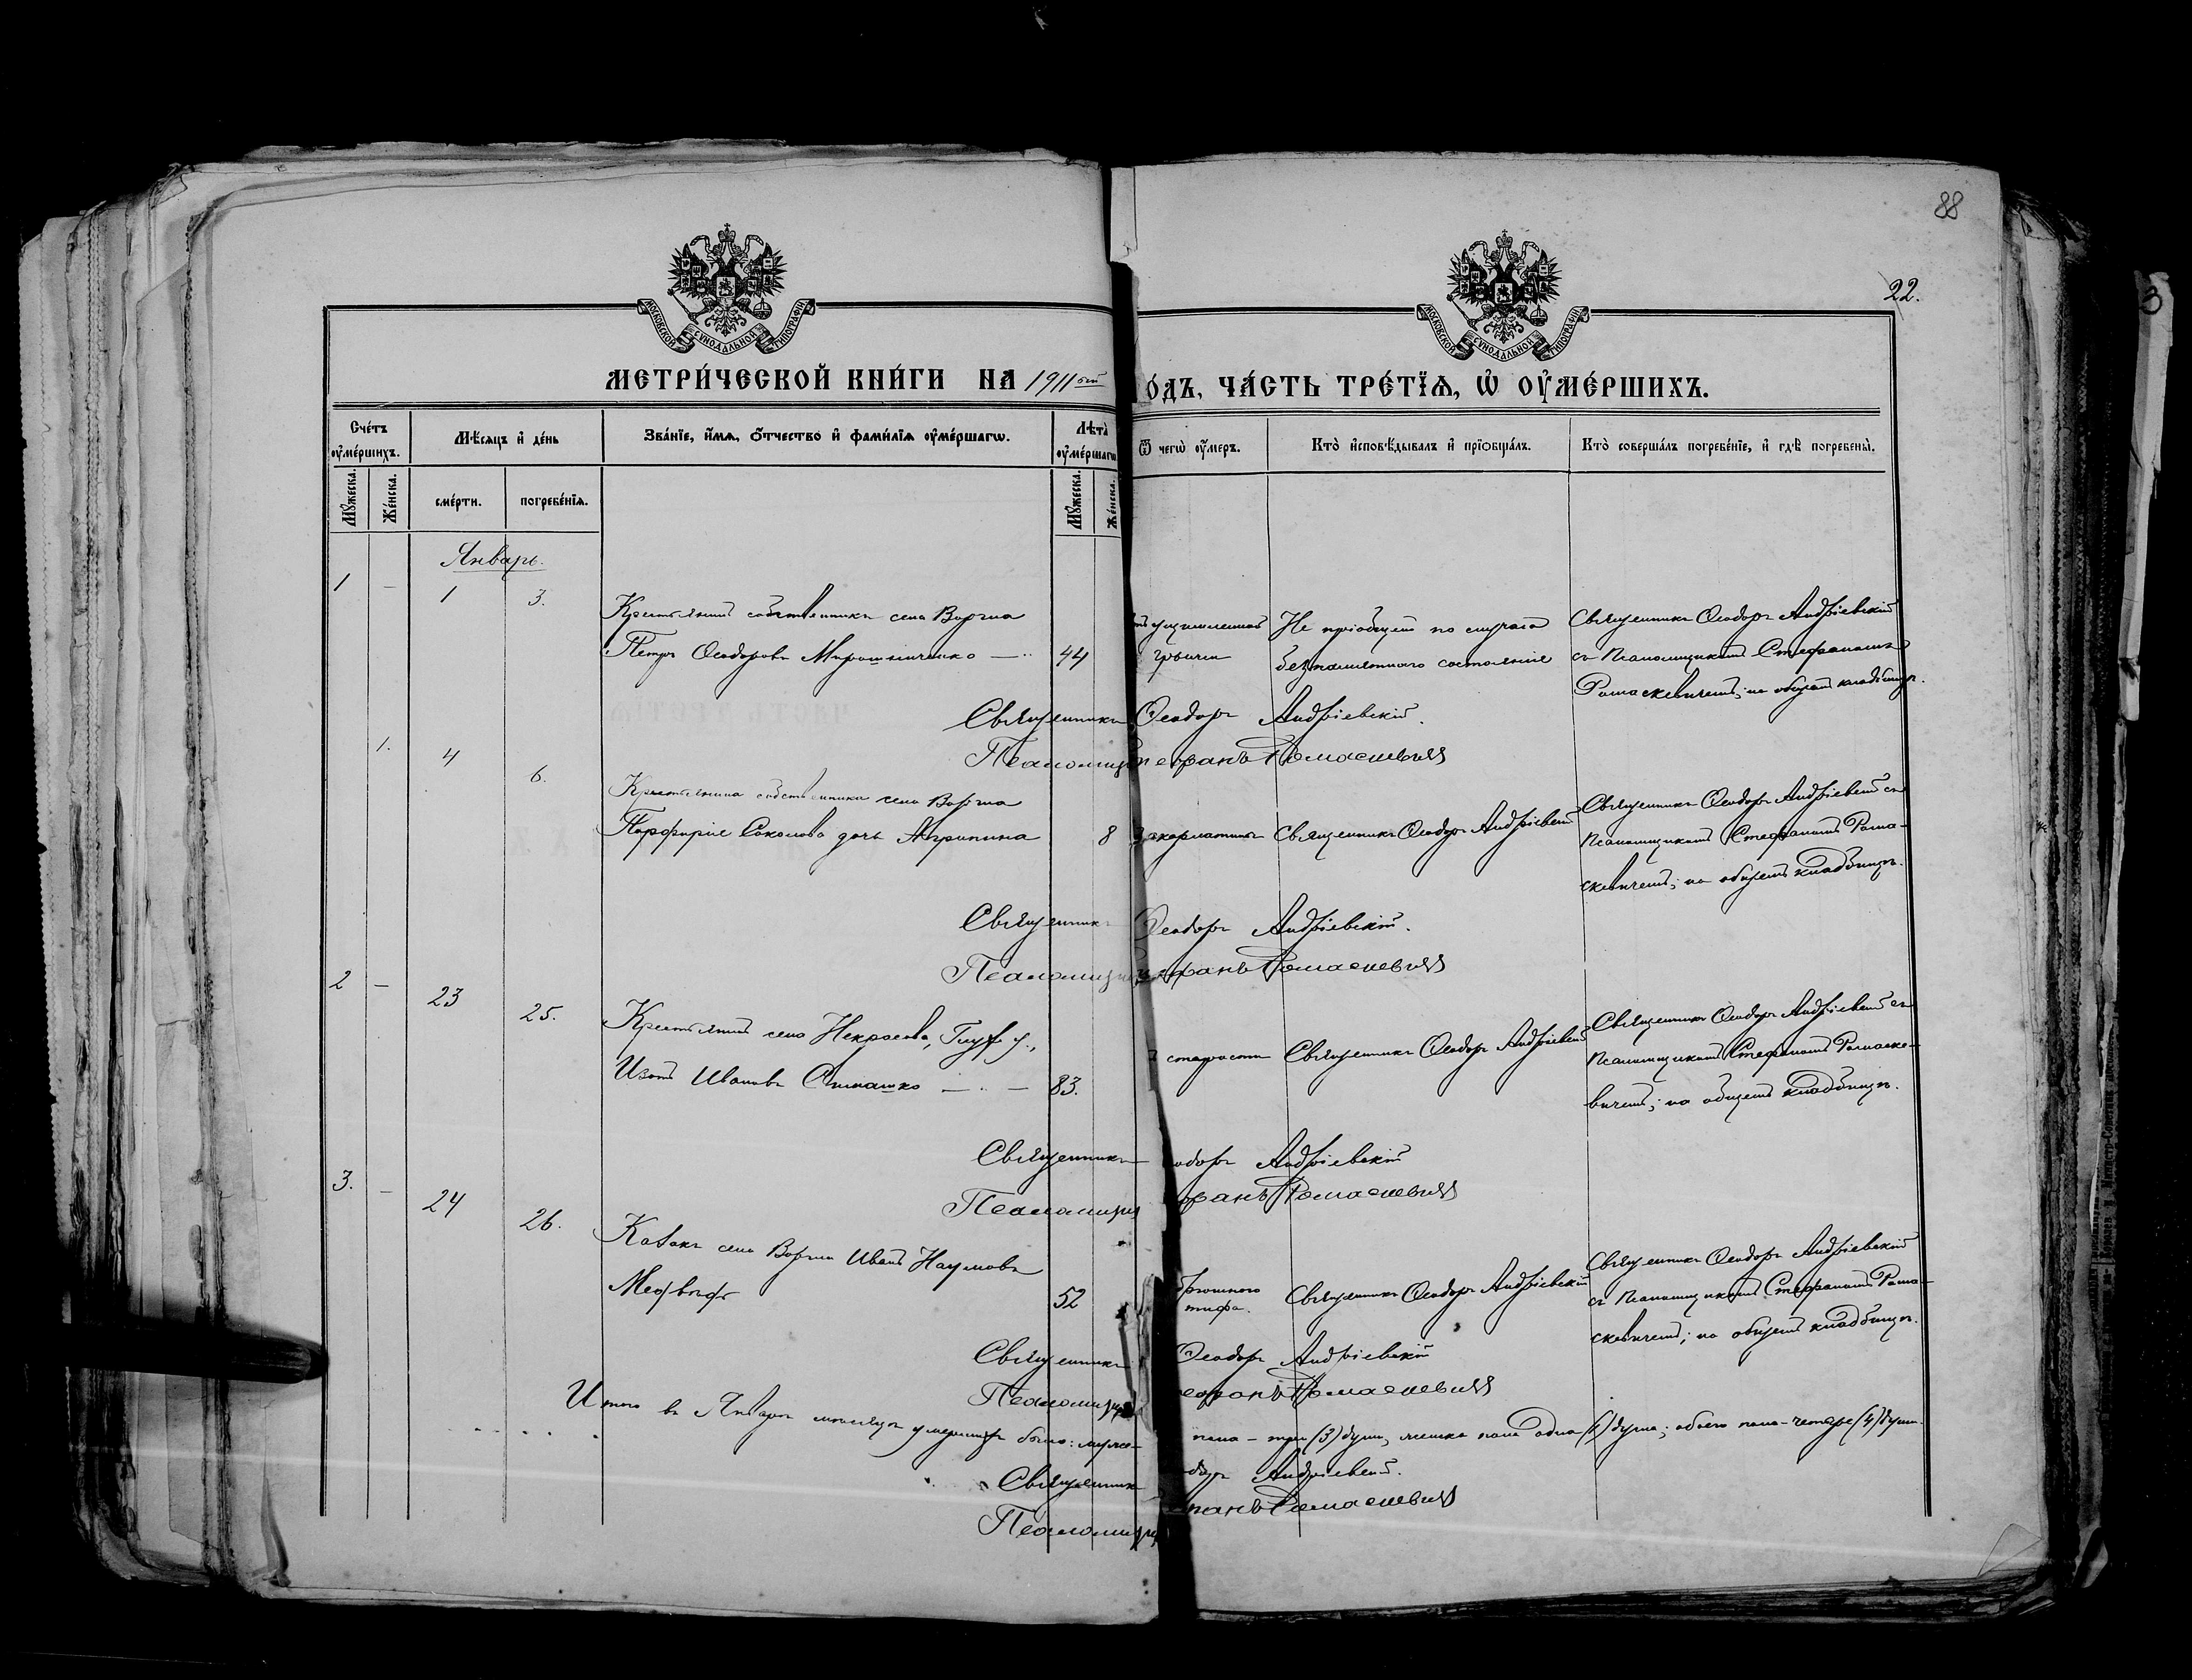 88
22.
МОСКОВСКОЙ СѴНОДАЛЬНОЙ ТИПОГРАФІИ
МОСКОВСКОЙ СѴНОДАЛЬНОЙ ТИПОГРАФІИ
МЕТРИ́ЧЕСКОЙ КНИ́ГИ НА 1911ый
О́ДЪ, ЧА́СТЬ ТРЕ́ТЇѦ, Ѡ҆ ОУ҆МЕ́РШИХЪ.
Сче́тъ оу҆ме́ршихъ.
Мѣ́сѧцъ и҆ де́нь
Зва́нїе, и҆́мѧ, о҆́тчество и҆ фами́лїѧ оу҆ме́ршагѡ.
Лѣ́та оу҆ме́ршагѡ
Ѿ чегѡ̀ оу҆́меръ.
Кто̀ и҆сповѣ́дывалъ и҆ прїѻбща́лъ.
Кто̀ соверша́лъ погребе́нїе, и҆ гдѣ̀ погребены̀.
Мꙋ́жеска.
Же́нска.
сме́рти.
погребе́нїѧ.
Мꙋ́жеска.
Же́нска.
Январь.
1 - 1 3.
Крестьянинъ собственникъ села Воргла
Петръ Ѳеодоровъ Мирошниченко — 44
ущемленной грыжи
Не пріобщенъ по случаю
безпамятнаго состоянія
Священникъ Ѳеодоръ Андріевскій
съ Псаломщикомъ Стефаномъ
Ромаскевичемъ; на общемъ кладбищѣ.
Священникъ Ѳеодоръ Андріевскій.
Псаломщи ефанъ Ромаскевичъ
1. 4 6.
Крестьянина собственника села Воргла
Порфирія Соколова дочь Агрипина 8
Священникъ Ѳеодоръ Андріевскій
Священникъ Ѳеодоръ Андріевскій съ
Псаломщикомъ Стефаномъ Рома-
скевичемъ; на общемъ кладбищѣ.
Священникъ Ѳеодоръ Андріевскій.
Псаломщи ефанъ Ромаскевичъ
2 - 23 25.
Крестьянинъ села Некрасова, Глух. у.,
Изотъ Ивановъ — 83.
старости
Священникъ Ѳеодоръ Андріевскій
Священникъ Ѳеодоръ Андріевскій съ
Псаломщикомъ Стефаномъ Ромаске-
вичемъ; на общемъ кладбищѣ.
Священникъ одоръ Андріевскій
Псаломщи фанъ Ромаскевичъ
3. - 24 26.
Козакъ села Воргла Иванъ Наумовъ
52
брюшного
тифа.
Священникъ Ѳеодоръ Андріевскій
Священникъ Ѳеодоръ Андріевскій
съ Псаломщикомъ Стефаномъ Рома-
скевичемъ; на общемъ кладбищѣ.
Священникъ Ѳеодоръ Андріевскій
Псаломщи ефанъ Ромаскевичъ
Итого въ Январѣ мѣсяцѣ умершихъ было: муже- пола - три (3) души, женска пола одна (1) душа; обоего пола - четыре (4) души.
Священник одоръ Андріевскій.
Псаломщи фанъ Ромаскевичъ